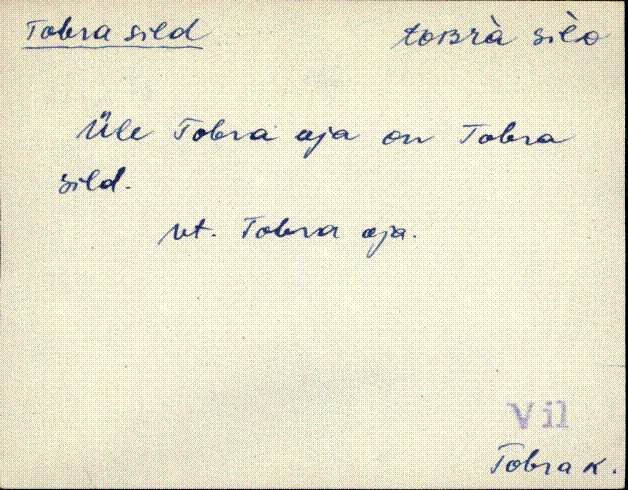 Tobra sild toʙrà silᴅ
Üle Tobra oja on Tobra
sild.
vt. Tobra oja.
Vil
Tobra k.